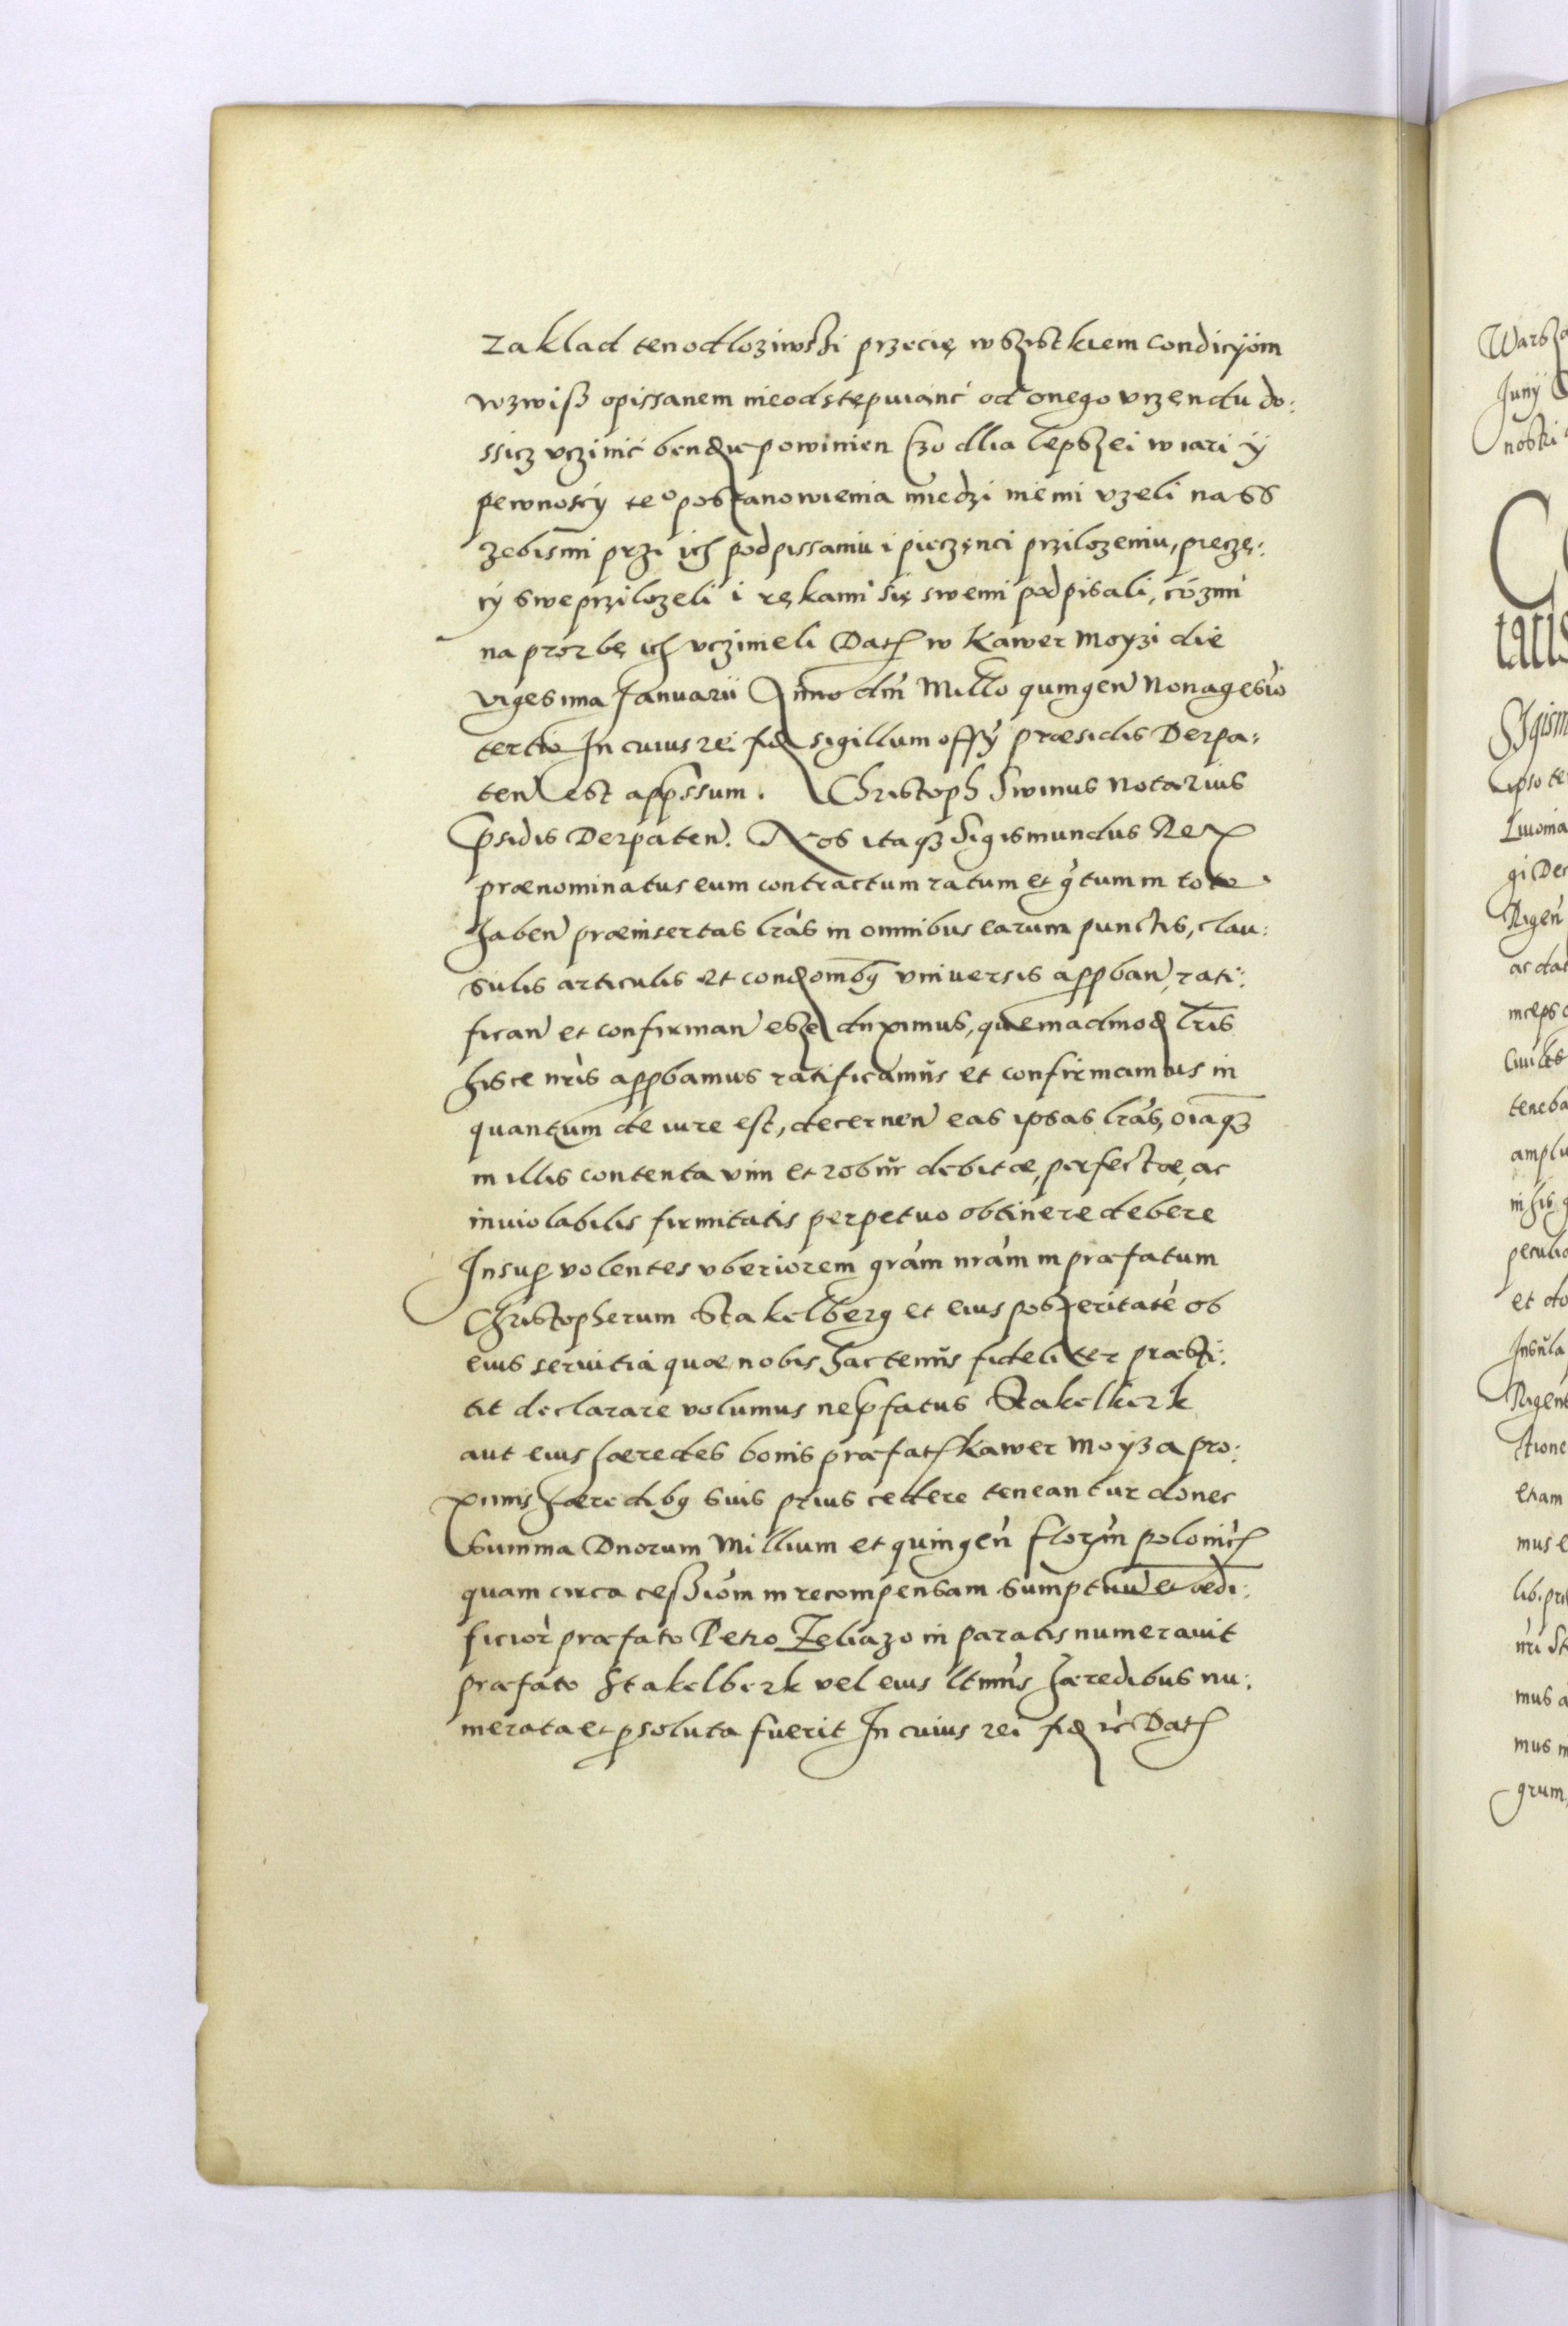 zaklad ten odloziwszi przecię wszistkiem condicyom
wzwiß opissanem nieodstępuianć od onego vrzendu do:
ssicz vczinić bendzie powinien Czo dlia lepszei wiari ÿ
pewnosćÿ te° postanowienia miedzi niemi vzeli nass
zebismi przi ich podpissaniu i pieczęnci przilozeniu, pieczę:
cÿ swe przilozeli i rękami się swemi podpisali, cósmi
na prozbę ich vczineli Dat w Kawer Moyzi die
vigesima Januarii Anno dni Millo quingen Nonagesio
tertio In cuius rei fid sigillum offÿ præsidis Derpa:
ten est appssum. Christoph Siwinus Notarius
Psidis Derpaten. Nos itaq Sigismundus Rex
prænominatus eum contractum ratum et gtum in toto
haben præinsertas lras in omnibus earum punctis, clau:
sulis articulis et condombq vniversis appban, rati:
fican et confirman esse duximus, quemadmod lris
hisce nris appbamus ratificamus et confirmamus in
quantum de iure est, decernen eas ipsas lras, oiaq
in illis contenta vim et robur debitæ, perfectæ, ac
inviolabilis firmitatis perpetuo obtinere debere
Insup volentes vberiorem gram nram in præfatum
Christopherum Stakelberg et eius posteritate ob
eius servitia quæ nobis hactenus fideliter præsti:
tit declarare volumus ne pfatus Stakelkerk
aut eius hæredes bonis præfat Kawer Moyza pro:
ximis hæredibq suis prius cedere teneantur donec
Summa Duorum Millium et quingen florin polonic
quam circa cessiom in recompensam sumptuu et ædi:
ficior præfato Petro Zeliazo in paratis numeravit
præfato Stakelberk vel eius ltmis hæredibus nu:
merata et psoluta fuerit In cuius rei fid ic Dat
Juny
nostri
tatis
Sigism
ipso te
Livonia
gi Der
Rigen
ac dat
inceps
teneba
amplu
in his
peculia
et do
Insula
Rigen
etiam
mus
lib. pri
nri St
mus a
mus m
grum,